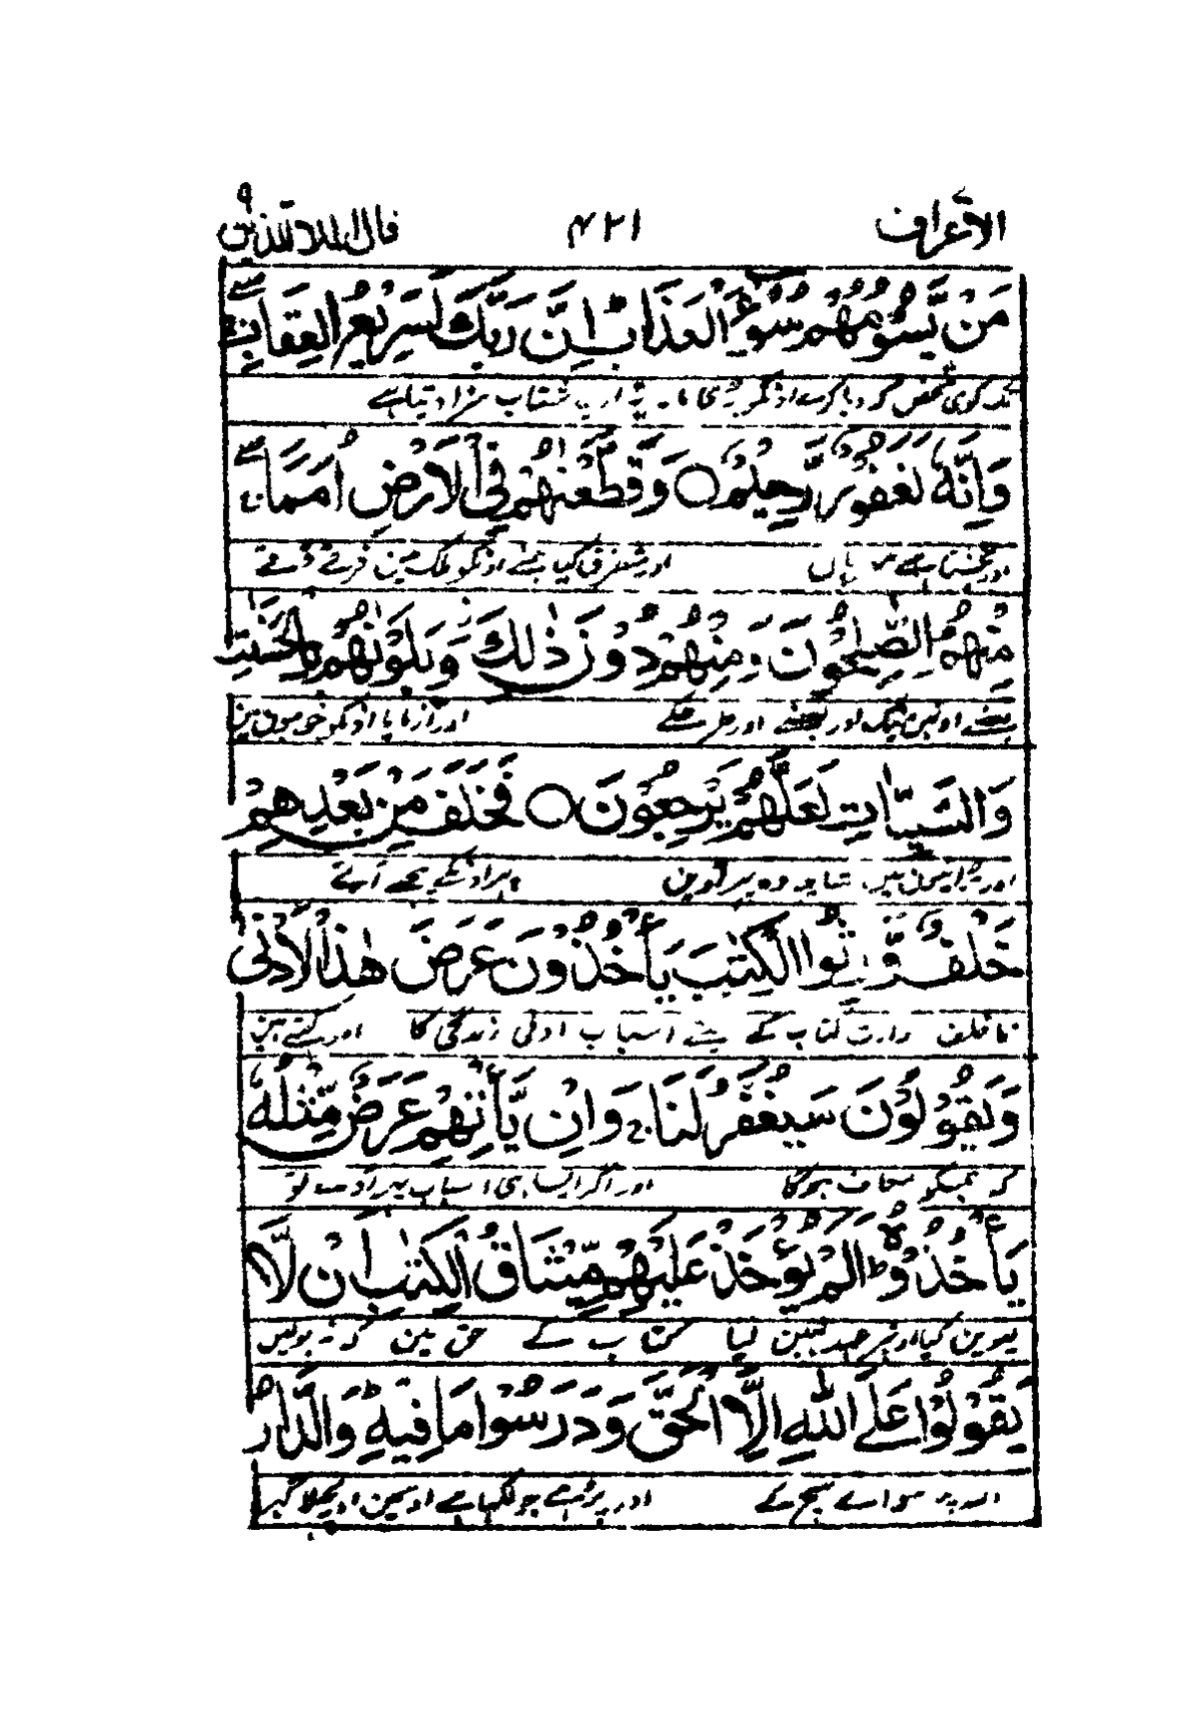 الاعراف ٧ ٤٢١ قال الملا الذين ٩
مَنْ يَّسُوْمُهُمْ سُوْٓءَ الْعَذَابِ ؕ اِنَّ رَبَّكَ لَسَرِيْعُ الْعِقَابِ ۖۚ
کہ کوی شخص کہ دیا کرے اونکو بری مار شتاب سزا دیتا ہے
وَاِنَّهٗ لَغَفُوْرٌ رَّحِيْمٌ ○ وَقَطَّعْنٰهُمْ فِي الْاَرْضِ اُمَمًا ۚ
اور بخشتا ہے اور متفرق کیا ہمنے اونکو ملک مین فرقے فرقے
مِنْهُمُ الصّٰلِحُوْنَ وَمِنْهُمْ دُوْنَ ذٰلِكَ ۫ وَبَلَوْنٰهُمْ بِالْحَسَنٰتِ
بعضے اونمین نیک اور بعضے اور طرحکے اور ازمایا اونکو خوبیون مین
وَالسَّيِّاٰتِ لَعَلَّهُمْ يَرْجِعُوْنَ ○ فَخَلَفَ مِنْ بَعْدِهِمْ
اور برائیون مین شاید وہ پھر آوین پھر اونکے پیچھے آئے
خَلْفٌ وَّرِثُوا الْكِتٰبَ يَاْخُذُوْنَ عَرَضَ هٰذَا الْاَدْنٰى
ناخلف وارث کتاب کے لیتے اسباب ادنی زندگی کا اور کہتے ہین
وَيَقُوْلُوْنَ سَيُغْفَرُ لَنَا ۚ وَاِنْ يَّاْتِهِمْ عَرَضٌ مِّثْلُهٗ
کہ ہمکو معاف ہوگا اور اگر ایسا ہی اسباب پھر آوے تو
يَاْخُذُوْهُ ؕ اَلَمْ يُؤْخَذْ عَلَيْهِمْ مِّيْثَاقُ الْكِتٰبِ اَنْ لَّا
لیوین کیا اونپر عہد نہین لیا کتاب کے حق مین کہ نہ بولین
يَقُوْلُوْا عَلَى اللّٰهِ اِلَّا الْحَقَّ وَدَرَسُوْا مَا فِيْهِ ؕ وَالدَّارُ
اللہ پر سوائے سچ کے اور پڑہا ہے جو لکھا ہے اوسمین اور پچھلا گھر